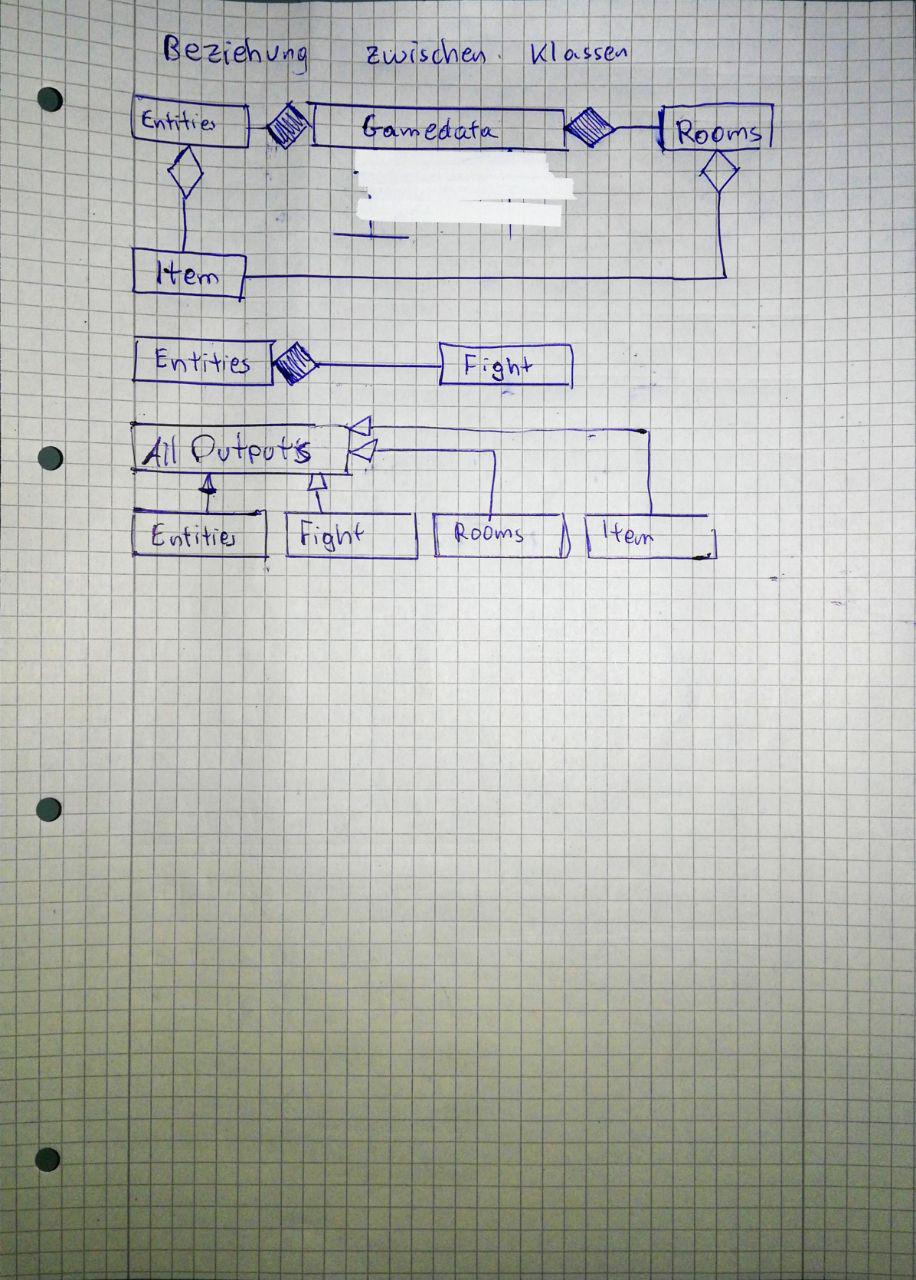 Beziehung zwischen Klassen
Entities Gamedata Rooms
Item
Entities Fight
All Outputs
Entities Fight Rooms Item